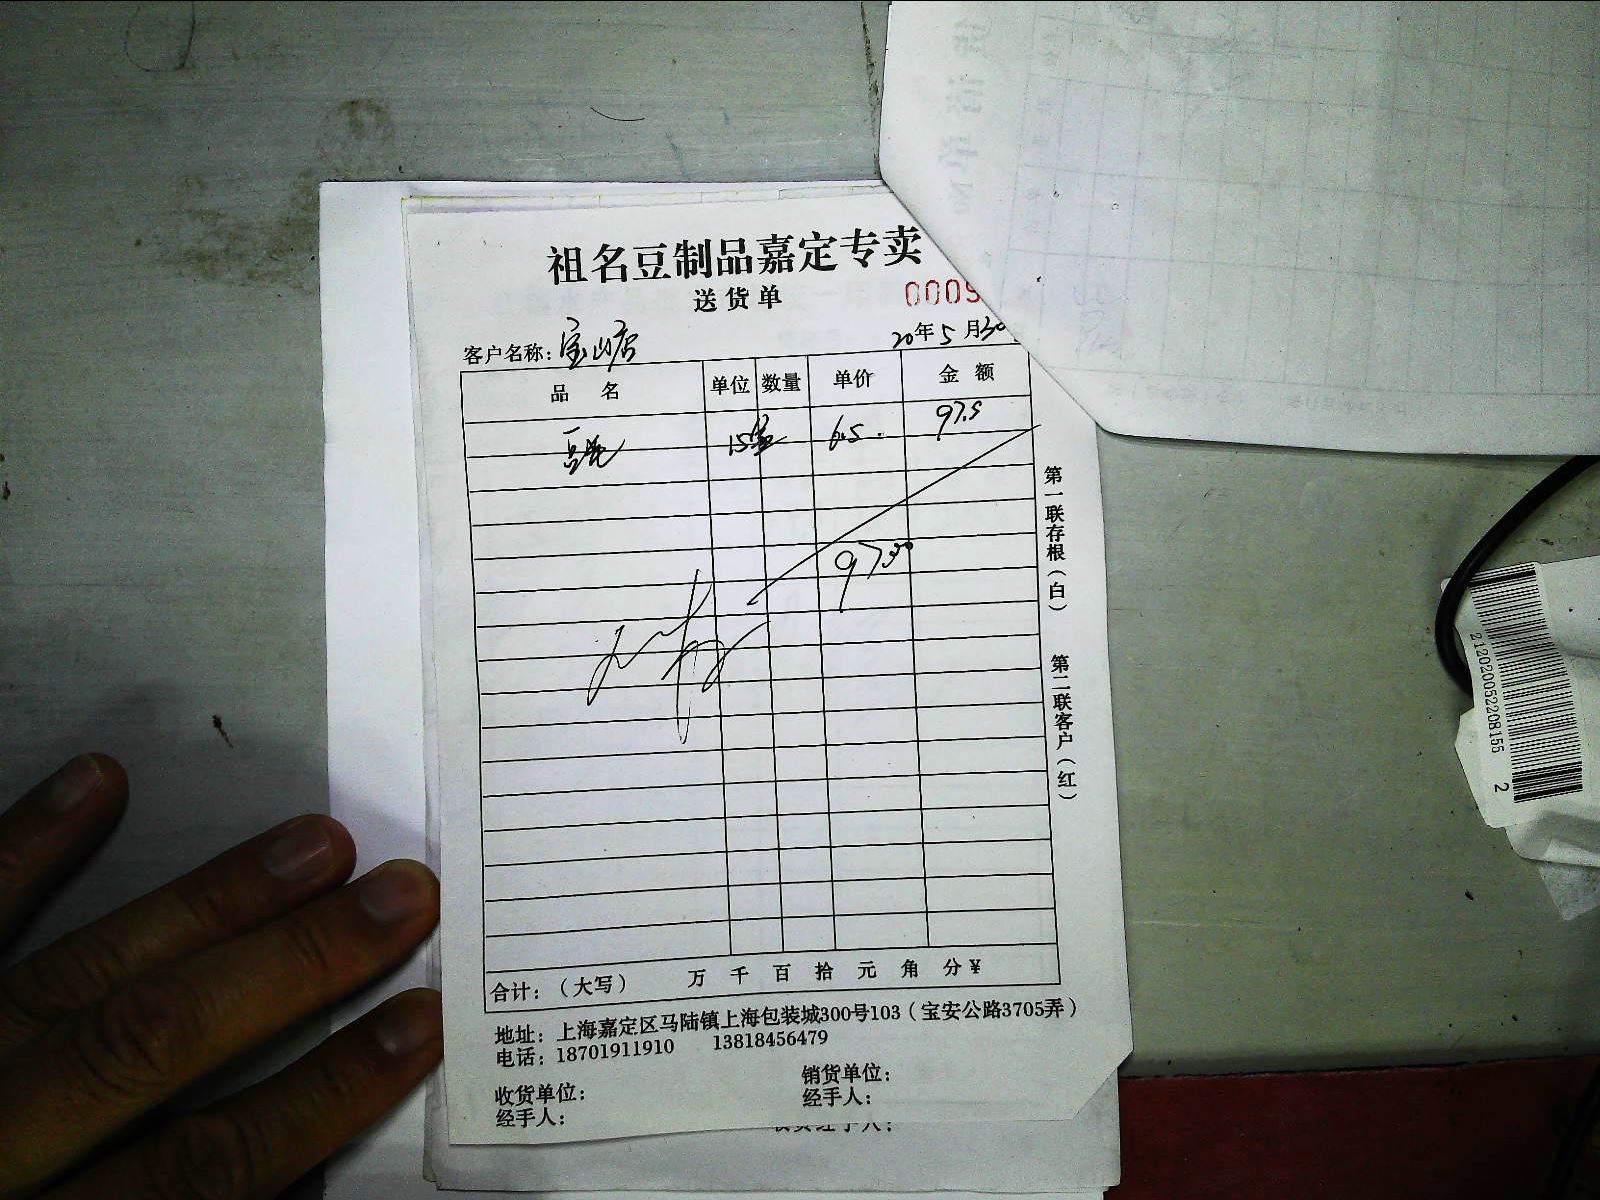 祖名豆制品嘉定专卖
送货单
0009
客户名称：宝山店
20年5月30
品名 单位 数量 单价 金额
15 6.5 97.5
97.50
第一联存根（白） 第二联客户（红）
合计：（大写） 万 千 百 拾 元 角 分￥
地址：上海嘉定区马陆镇上海包装城300号103（宝安公路3705弄）
电话：18701911910 13818456479
收货单位： 销货单位：
经手人： 经手人：
212020052208155 2